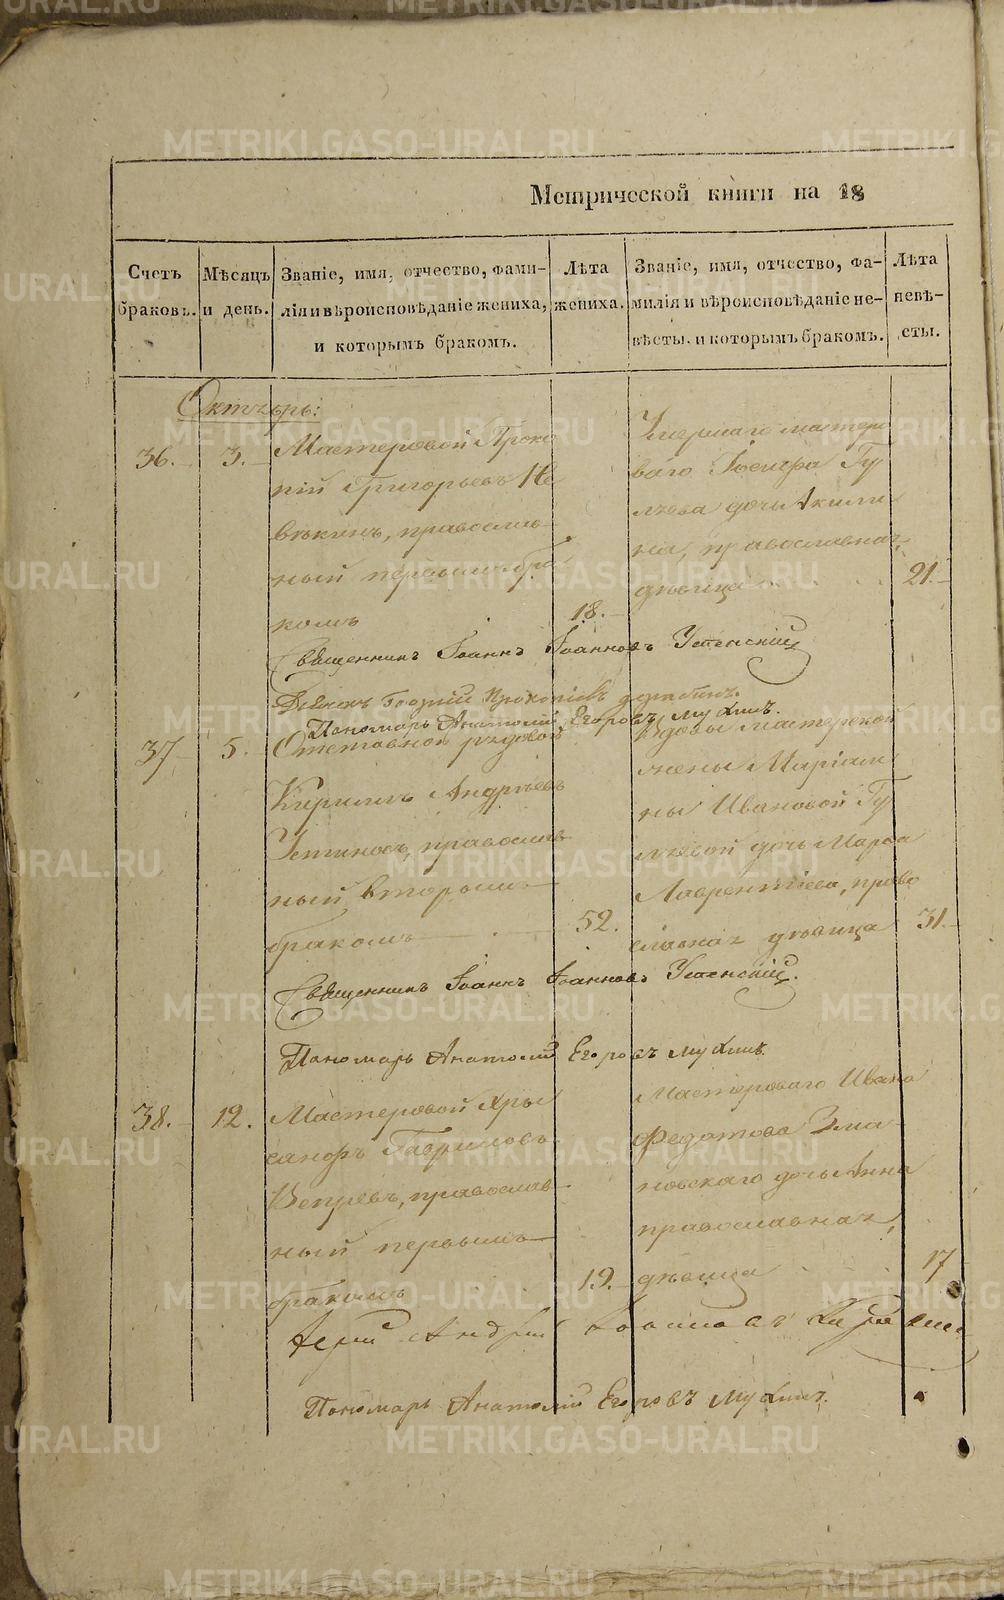 METRIKI.GASO-URAL.RU
Метрической книги на 18
Счетъ браковъ.
Мѣсяцъ и день.
Званіе, имя, отчество, фами-
лія и вѣроисповѣданіе жениха,
и которымъ бракомъ.
Лѣта жениха.
Званіе, имя, отчество, фа-
милія и вѣроисповѣданіе не-
вѣсты, и которымъ бракомъ.
Лѣта невѣ-
сты.
Октябрь:
36.
3.
Мастеровой Проко
пій Григорьевъ Не
вѣкинъ, православ
ный первымъ бра
комъ
18.
Умершаго мастеро
ваго Іосифа Гу
лѣева дочь Акили
на, православная,
дѣвица
21.
Священникъ Іоаннъ Іоанновъ Успенскій
Дьячекъ Георгій Прокопіевъ
Пономарь Анатолій Егоровъ Мухинъ.
37
5.
Отставной рядовой
Кириллъ Андреевъ
Устиновъ, православ
ный вторымъ
бракомъ
52.
Вдовы мастерской
жены Маріам
ны Ивановой Гу
лѣевой дочь Марфа
Лаврентіева, право
славная дѣвица
31.
Священникъ Іоаннъ Іоанновъ Успенскій.
Пономарь Анатолій Егоровъ Мухинъ.
38.
12.
Мастеровой Хры
санфъ Гавриловъ
Вепревъ, православ
ный первымъ
бракомъ
19.
Мастероваго Ивана
Федотова Зма
новскаго дочь Анна
православная,
дѣвица
17
Іерей Андрей
Пономарь Анатолій Егоровъ Мухинъ.